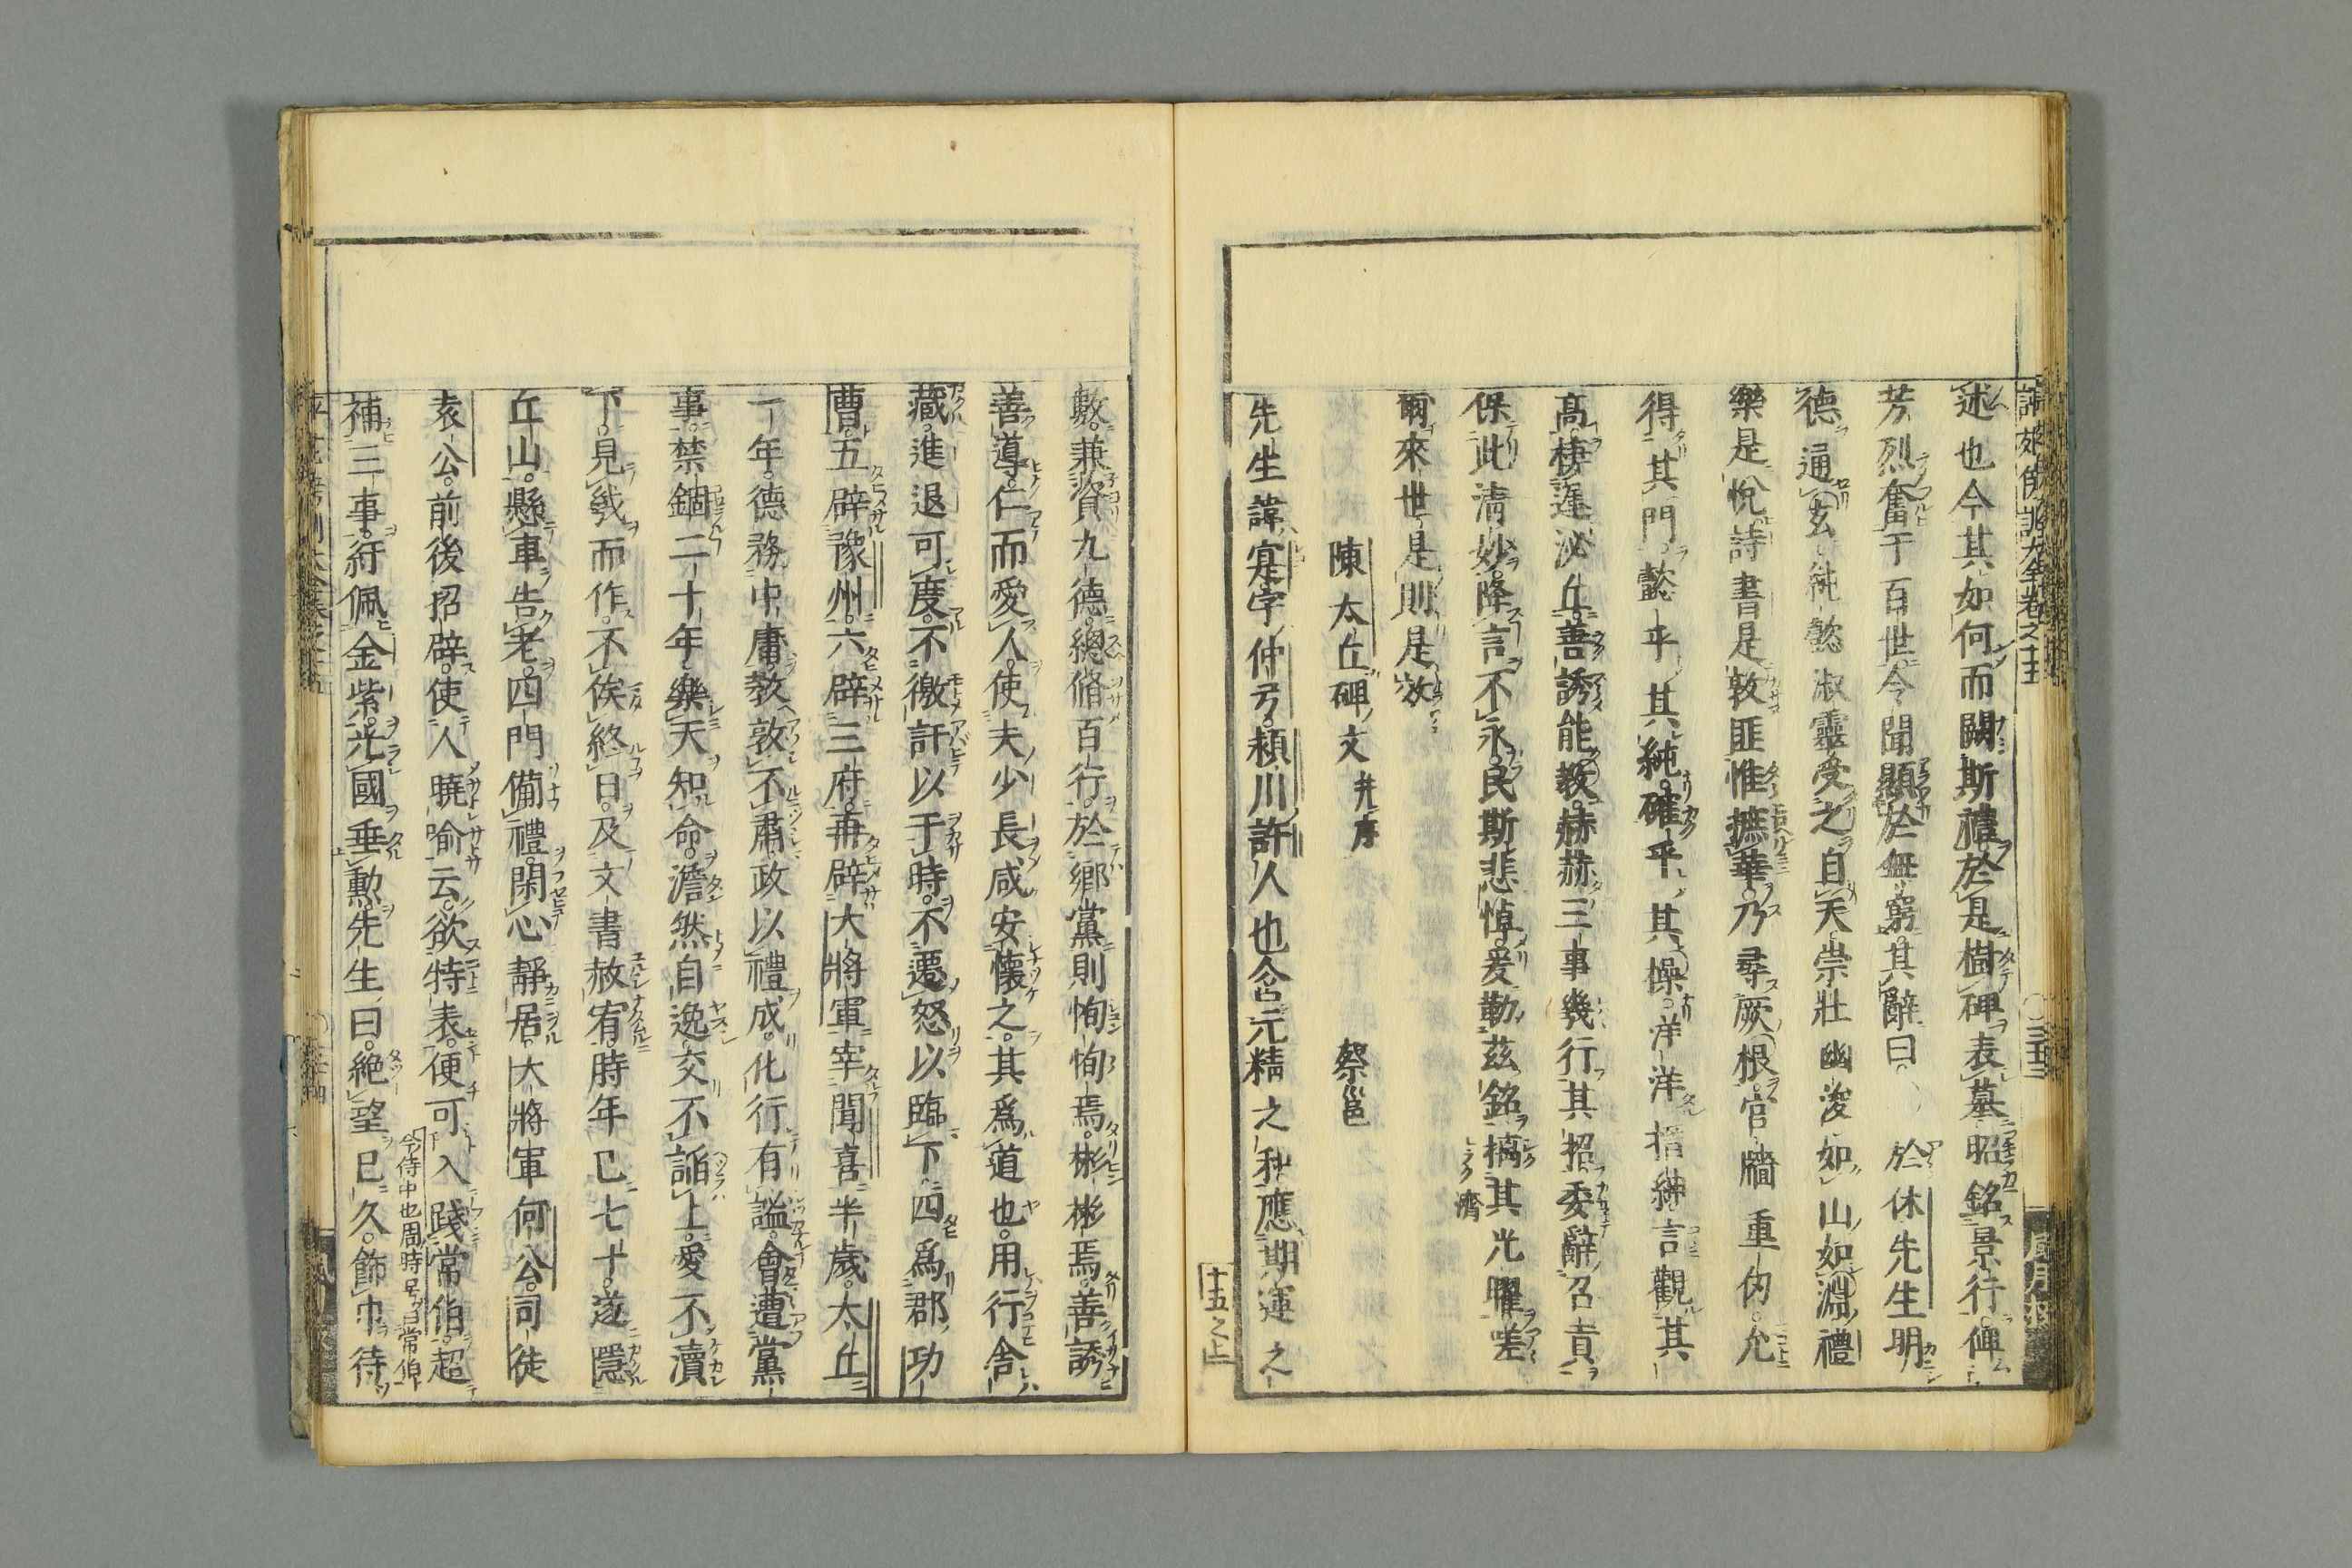 述也今其如何而闕斯禮於是樹碑表墓昭銘景行俾
芳烈奮于百世令聞顯於無窮其辭曰於休先生明
德通玄純懿淑靈受之自天崇壯幽浚如山如淵禮
樂是悅詩書是敦匪惟摭華乃尋厥根宮牆重仞允
得其門懿乎其純確乎其操洋洋搢紳言觀其
高棲遲泌丘善誘能教赫赫三事幾行其招委辭召貢
保此淸妙降言不永民斯悲悼爰勒茲銘摛其光曜嗟
爾來世是則是效
陳太丘碑文 幷序 蔡邕
先生諱寔字仲弓潁川許人也含元精之和應期運之
十五之上
數兼資九德總脩百行於鄉黨則恂恂焉彬彬焉善誘
善導仁而愛人使夫少長咸安懷之其爲道也用行舍
藏進退可度不徼訐以干時不遷怒以臨下四爲郡功
曹五辟豫州六辟三府再辟大將軍宰聞喜半歲太丘
一年德務中庸敎敦不肅政以禮成化行有謐會遭黨
事禁錮二十年樂天知命澹然自逸交不諂上愛不瀆
下見幾而作不俟終日及文書赦宥時年已七十遂隱
丘山懸車告老四門備禮閑心靜居大將軍何公司徒
袁公前後招辟使人曉喻云欲特表便可入踐常伯超
今侍中也周時号曰常伯
補三事紆佩金紫光國垂勳先生曰絶望已久飾巾待